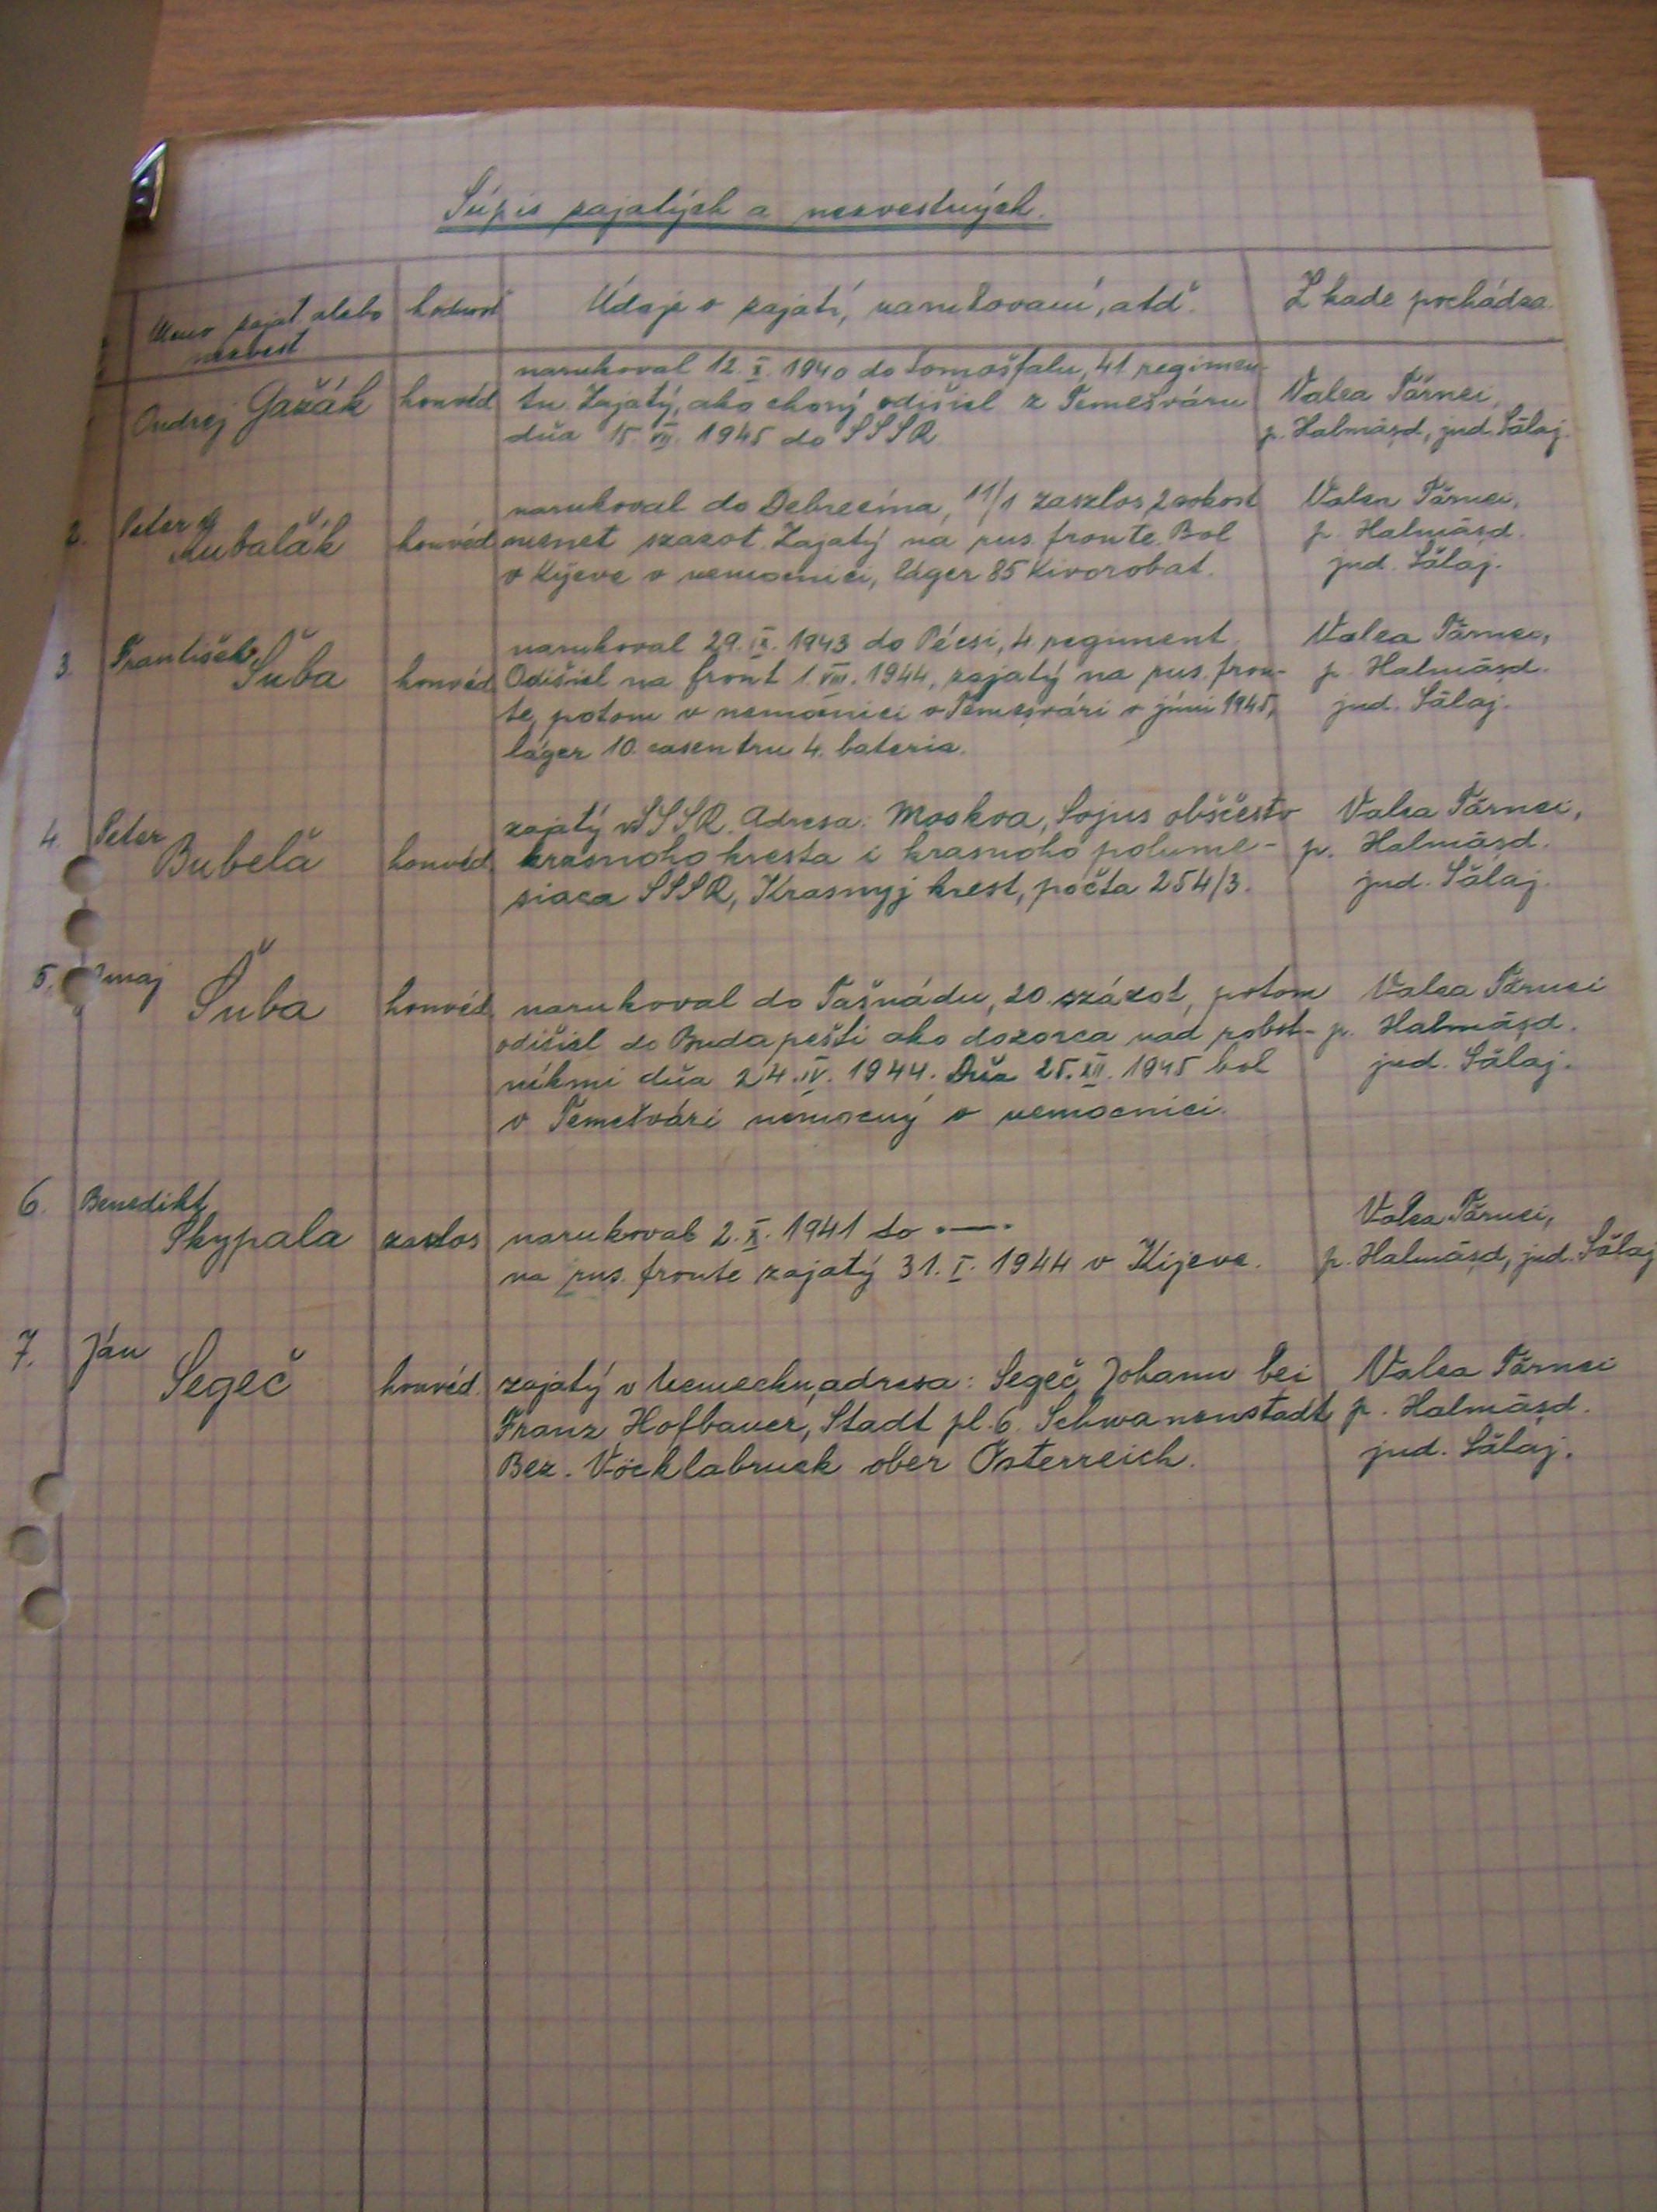 Súpis zajatých a nezvestných.
Meno zajat alebo nezvest
hodnosť
Údaje o zajatí, narukovaní, atď.
Z kade pochádza.
narukoval 12. X. 1940 do Tomošfalu, 41 regimen-
Ondrej Gažák honvéd tu. Zajatý, ako chorý odišiel z Temešváru Valea Tărnei,
dňa 15. VIII. 1945 do SSSR p. Halmăşd, jud. Sălaj.
2. Peter narukoval do Debrecína, 11/1 zaszlos, Valea Tărnei,
Kubalák honvéd menet szazot. Zajatý na rus. fronte. Bol p. Halmăşd.
v Kyjeve v nemocnici, láger 85 Kivorobat. jud. Sălaj.
3. František narukoval 29. IX. 1943 do Pécsi, 4 regiment. Valea Tărnei,
Šuba honvéd Odišiel na front 1. VIII. 1944, zajatý na rus. fron- p. Halmăşd.
te, potom v nemocnici v Temešvári v júni 1945, jud. Sălaj.
láger 10. casentru 4. bateria.
4. Peter zajatý v SSSR. Adresa: Moskva, Sojus obščestv Valea Tărnei,
Bubelä honvéd. krasnoho kresta i krasnoho polume- p. Halmăşd.
siaca SSSR, Krasnyj krest, počta 254/3. jud. Sălaj.
5.
Šuba honvéd. narukoval do Tašnádu, 20. százot, potom Valea Tărnei
odišiel do Budapešti ako dozorca nad robot- p. Halmăşd.
níkmi dňa 24. IV. 1944. Dňa 25. XII. 1945 bol jud. Sălaj.
v Temešvári nemocný v nemocnici.
6. Benedikt Valea Tărnei,
Skypala zaszlos narukoval 2. X. 1941 do .—.
na rus. fronte zajatý 31. I. 1944 v Kijeve. p. Halmăşd, jud. Sălaj
7. Ján
Segeč honvéd. zajatý v Nemecku, adresa: Segeč Johann bei Valea Tărnei
Franz Hofbauer, Stadt pl. 6. Schwanenstadt p. Halmăşd.
Bez. Vöcklabruck ober Österreich. jud. Sălaj.